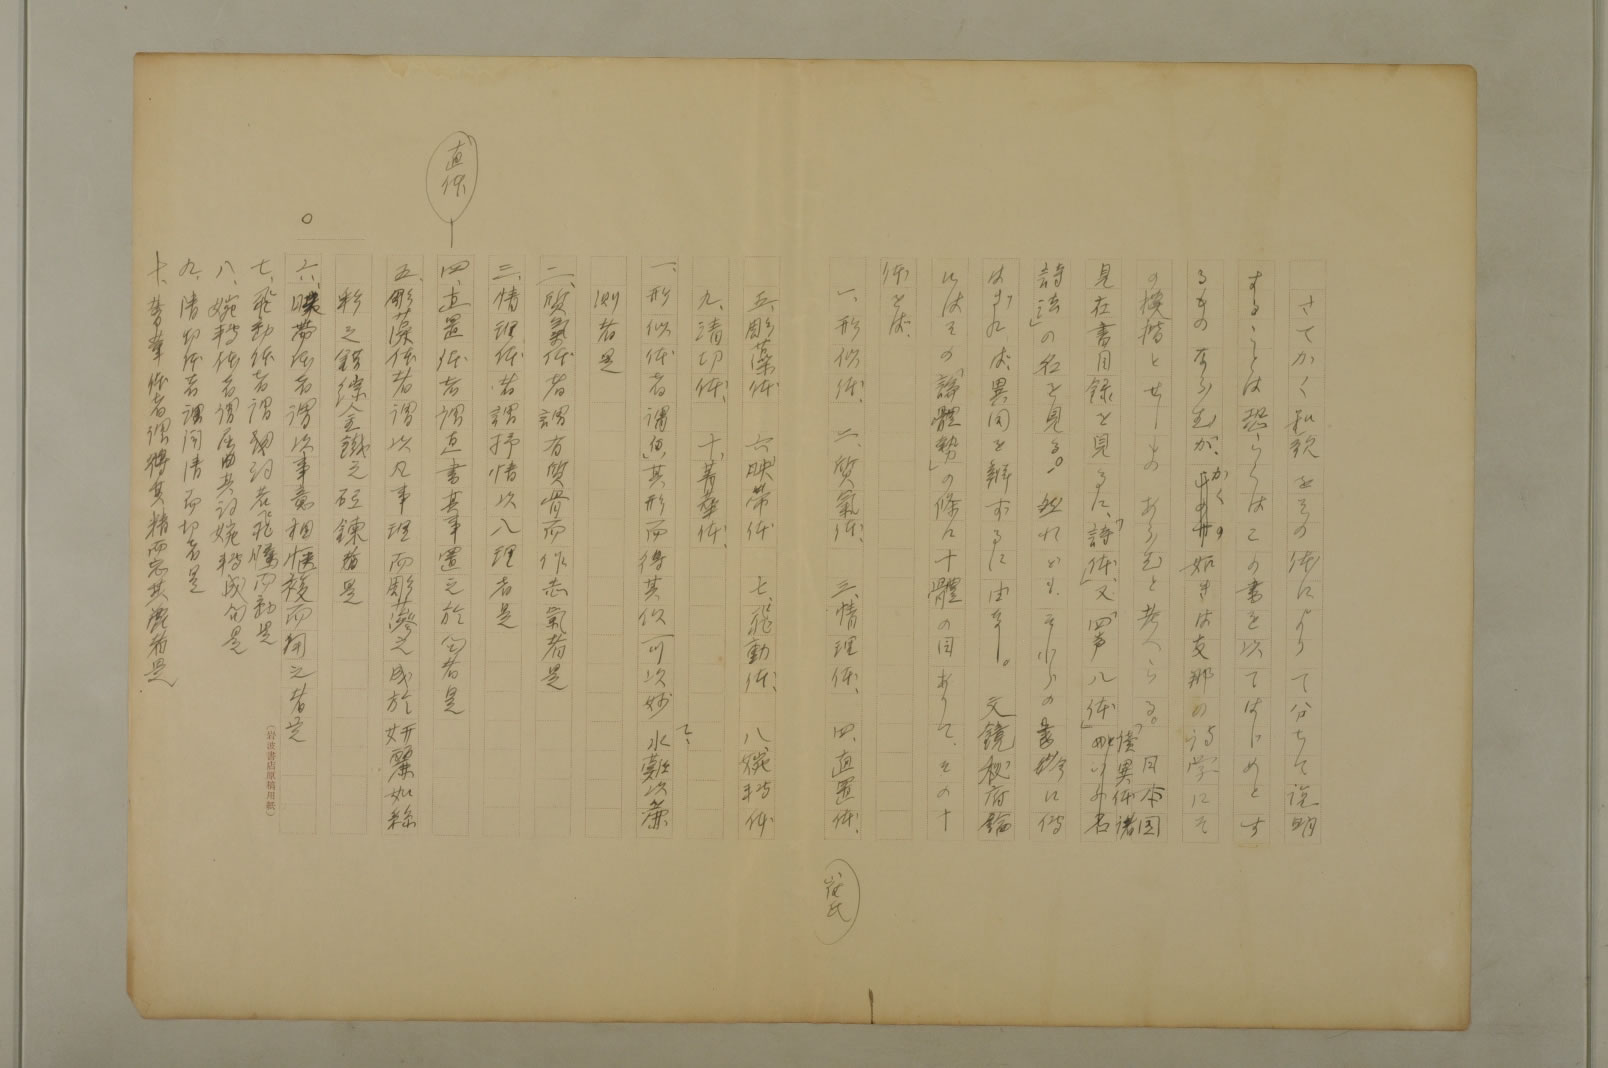 さてかく和歌をその体によりて分ちて説明
することは恐らくはこの書を以てはじめとす
るものならむが、かくの如きは支那の詩学にそ
の模楷とせしものあらむと考へらる。日本国
見在書目録を見るに、「詩体」、又「四声八体」「讃異体諸
詩法」の名を見る。然れども、それらの書今に伝
はらねば、異同を辨ずるに由なし。文鏡秘府論
にはその「論體勢」の條に十體の目ありて、その十
体とは、
一、形似体、 二、質氣体、 三、情理体、 四、直置体、
(崔氏)
五、彫藻体、 六、映帯体、 七、飛動体、 八、婉轉体
九、清切体、 十、菁華体、
一、形似体者謂皃其形而得其似可以妙求難以麁
測者是
二、質氣体者謂有質骨而作志氣者是
三、情理体者謂抒情以入理者是
直体
四、直置体者謂直書其事置之於句者是
五、彫藻体者謂以凡事理而彫藻之成於妍麗如絲
彩之錯綜金鐵之砥鍊者是
六、映帯体者謂以事意相愜複而用之者是
七、飛動体者謂詞若飛騰而動是
八、婉轉体者謂屈曲其詞婉轉成句是
九、清切体者謂詞清而切者是
十、菁華体者謂得其精而忘其麁者是
(岩波書店原稿用紙)